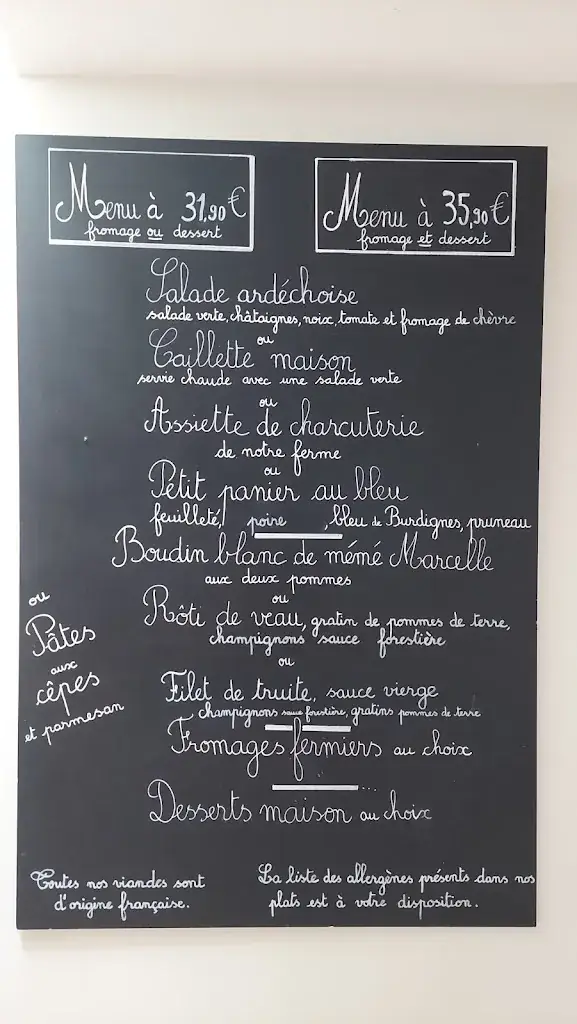 Menu à 31,90€
fromage ou dessert
Menu à 35,90€
fromage et dessert
Salade ardéchoise
salade verte, châtaignes, noix, tomate et fromage de chèvre
ou
Caillette maison
servie chaude avec une salade verte
ou
Assiette de charcuterie
de notre ferme
ou
Petit panier au bleu
feuilleté, poire, bleu de Burdignes, pruneau
Boudin blanc de mémé Marcelle
aux deux pommes
ou
Rôti de veau, gratin de pommes de terre,
champignons sauce forestière
ou
Filet de truite, sauce vierge
champignons sauce forestière, gratins pommes de terre
ou
Pâtes
aux
cèpes
et parmesan
Fromages fermiers au choix
Desserts maison au choix
Toutes nos viandes sont
d'origine française.
La liste des allergènes présents dans nos
plats est à votre disposition.